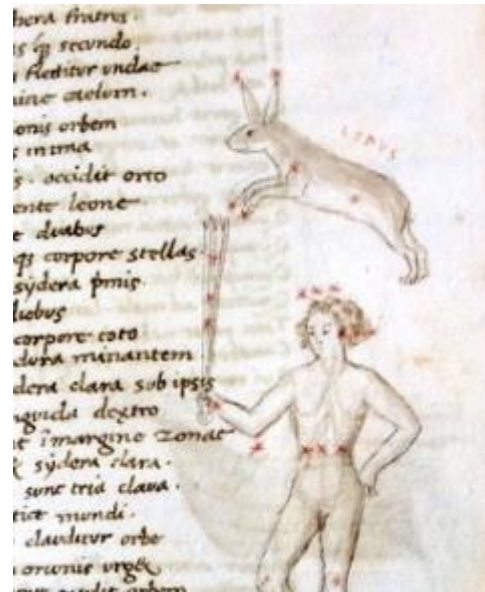 hera fratris.
is q̃ secundo.
flectitur undae
ine caelum.
onis orbem
s intima
s. occidit orto
ente leone
e duabus
q; corpore stellas
sydera p̃mis
corpore toto
dura minantem
dera clara sub ipsis
nguida dextro
t ĩ margine zonae
& sydera clara.
sunt tria clava.
tice mundi.
clauditur orbe
orionis urget
occidit orbem
LEPVS